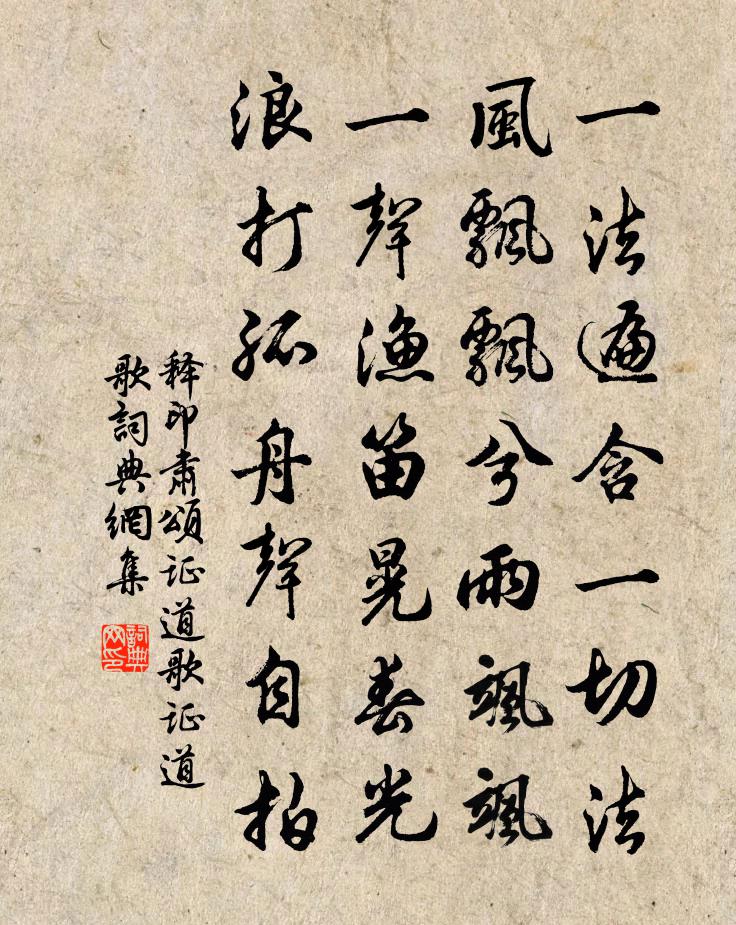 一法遍含一切法
風飄飄兮雨颯颯
一聲漁笛晃春光
浪打孤舟聲自拍
释印肅頌证道歌证道
歌詞典網集
詞典网印